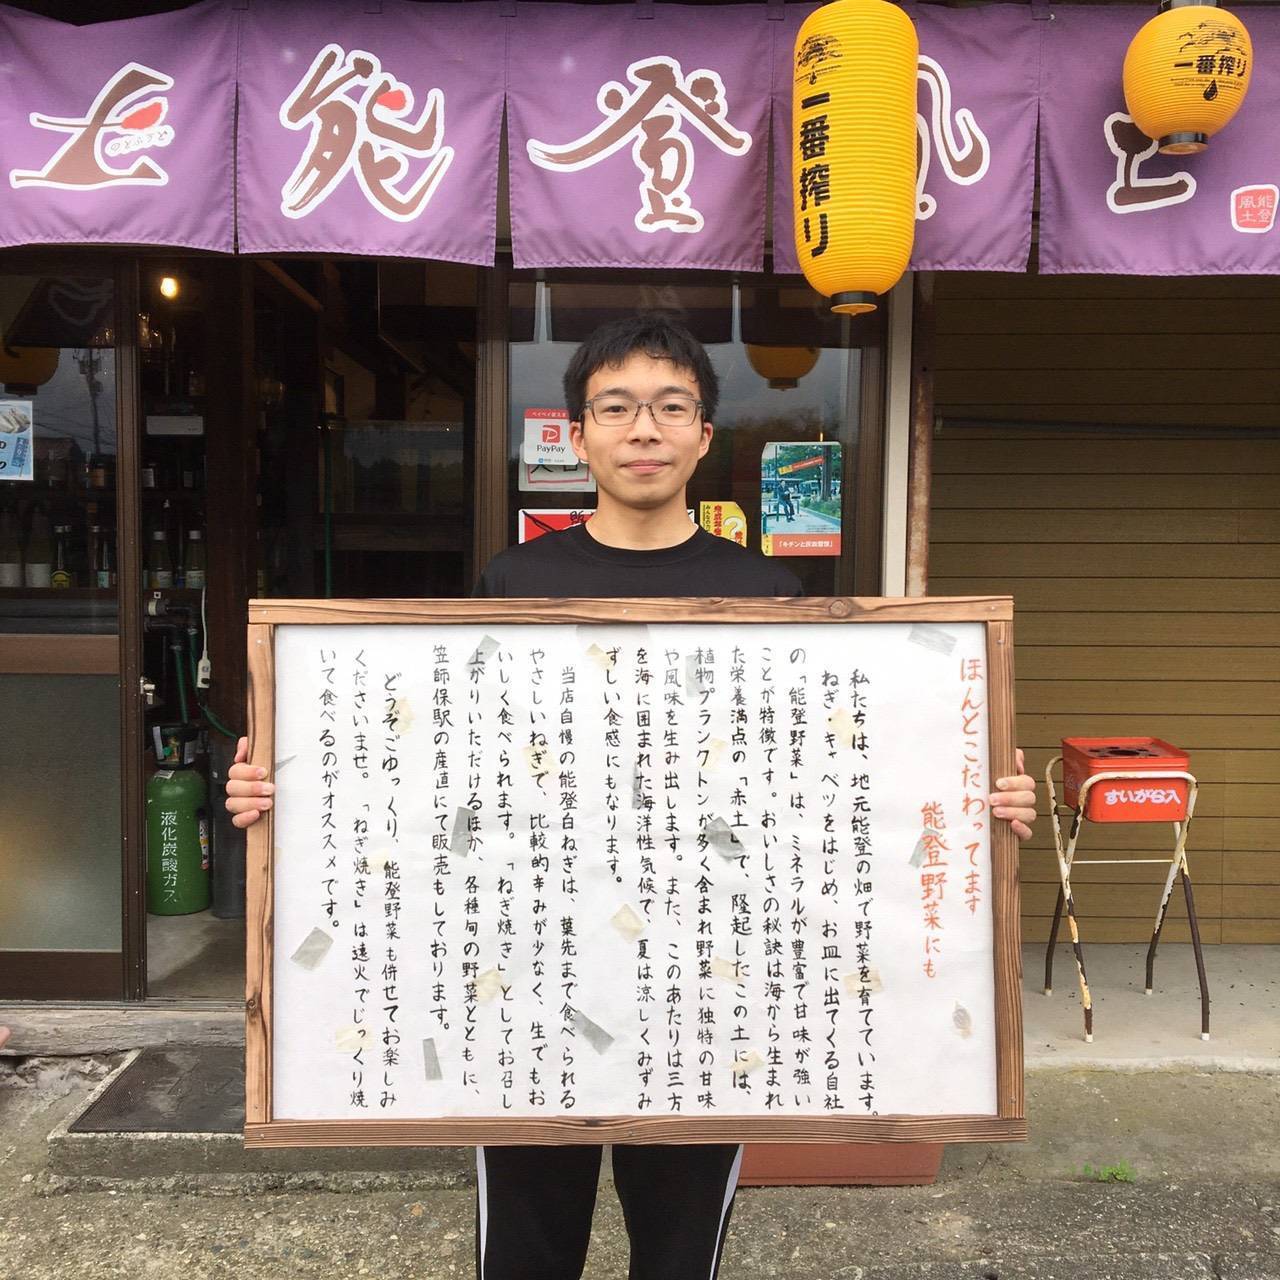 土
のとふうど
能
登
風
土
能登
風土
一番搾り
一番搾り
ペイペイ使えます
PayPay
「キチンと灰皿習慣」
液化炭酸ガス
すいがら入
ほんとこだわってます
能登野菜にも
私たちは、地元能登の畑で野菜を育てています。
ねぎ・キャベツをはじめ、お皿に出てくる自社
の「能登野菜」は、ミネラルが豊富で甘味が強い
ことが特徴です。おいしさの秘訣は海から生まれ
た栄養満点の「赤土」で、隆起したこの土には、
植物プランクトンが多く含まれ野菜に独特の甘味
や風味を生み出します。また、このあたりは三方
を海に囲まれた海洋性気候で、夏は涼しくみずみ
ずしい食感にもなります。
当店自慢の能登白ねぎは、葉先まで食べられる
やさしいねぎで、比較的辛みが少なく、生でもお
いしく食べられます。「ねぎ焼き」としてお召し
上がりいただけるほか、各種旬の野菜とともに、
笠師保駅の産直にて販売もしております。
どうぞごゆっくり、能登野菜も併せてお楽しみ
くださいませ。「ねぎ焼き」は遠火でじっくり焼
いて食べるのがオススメです。